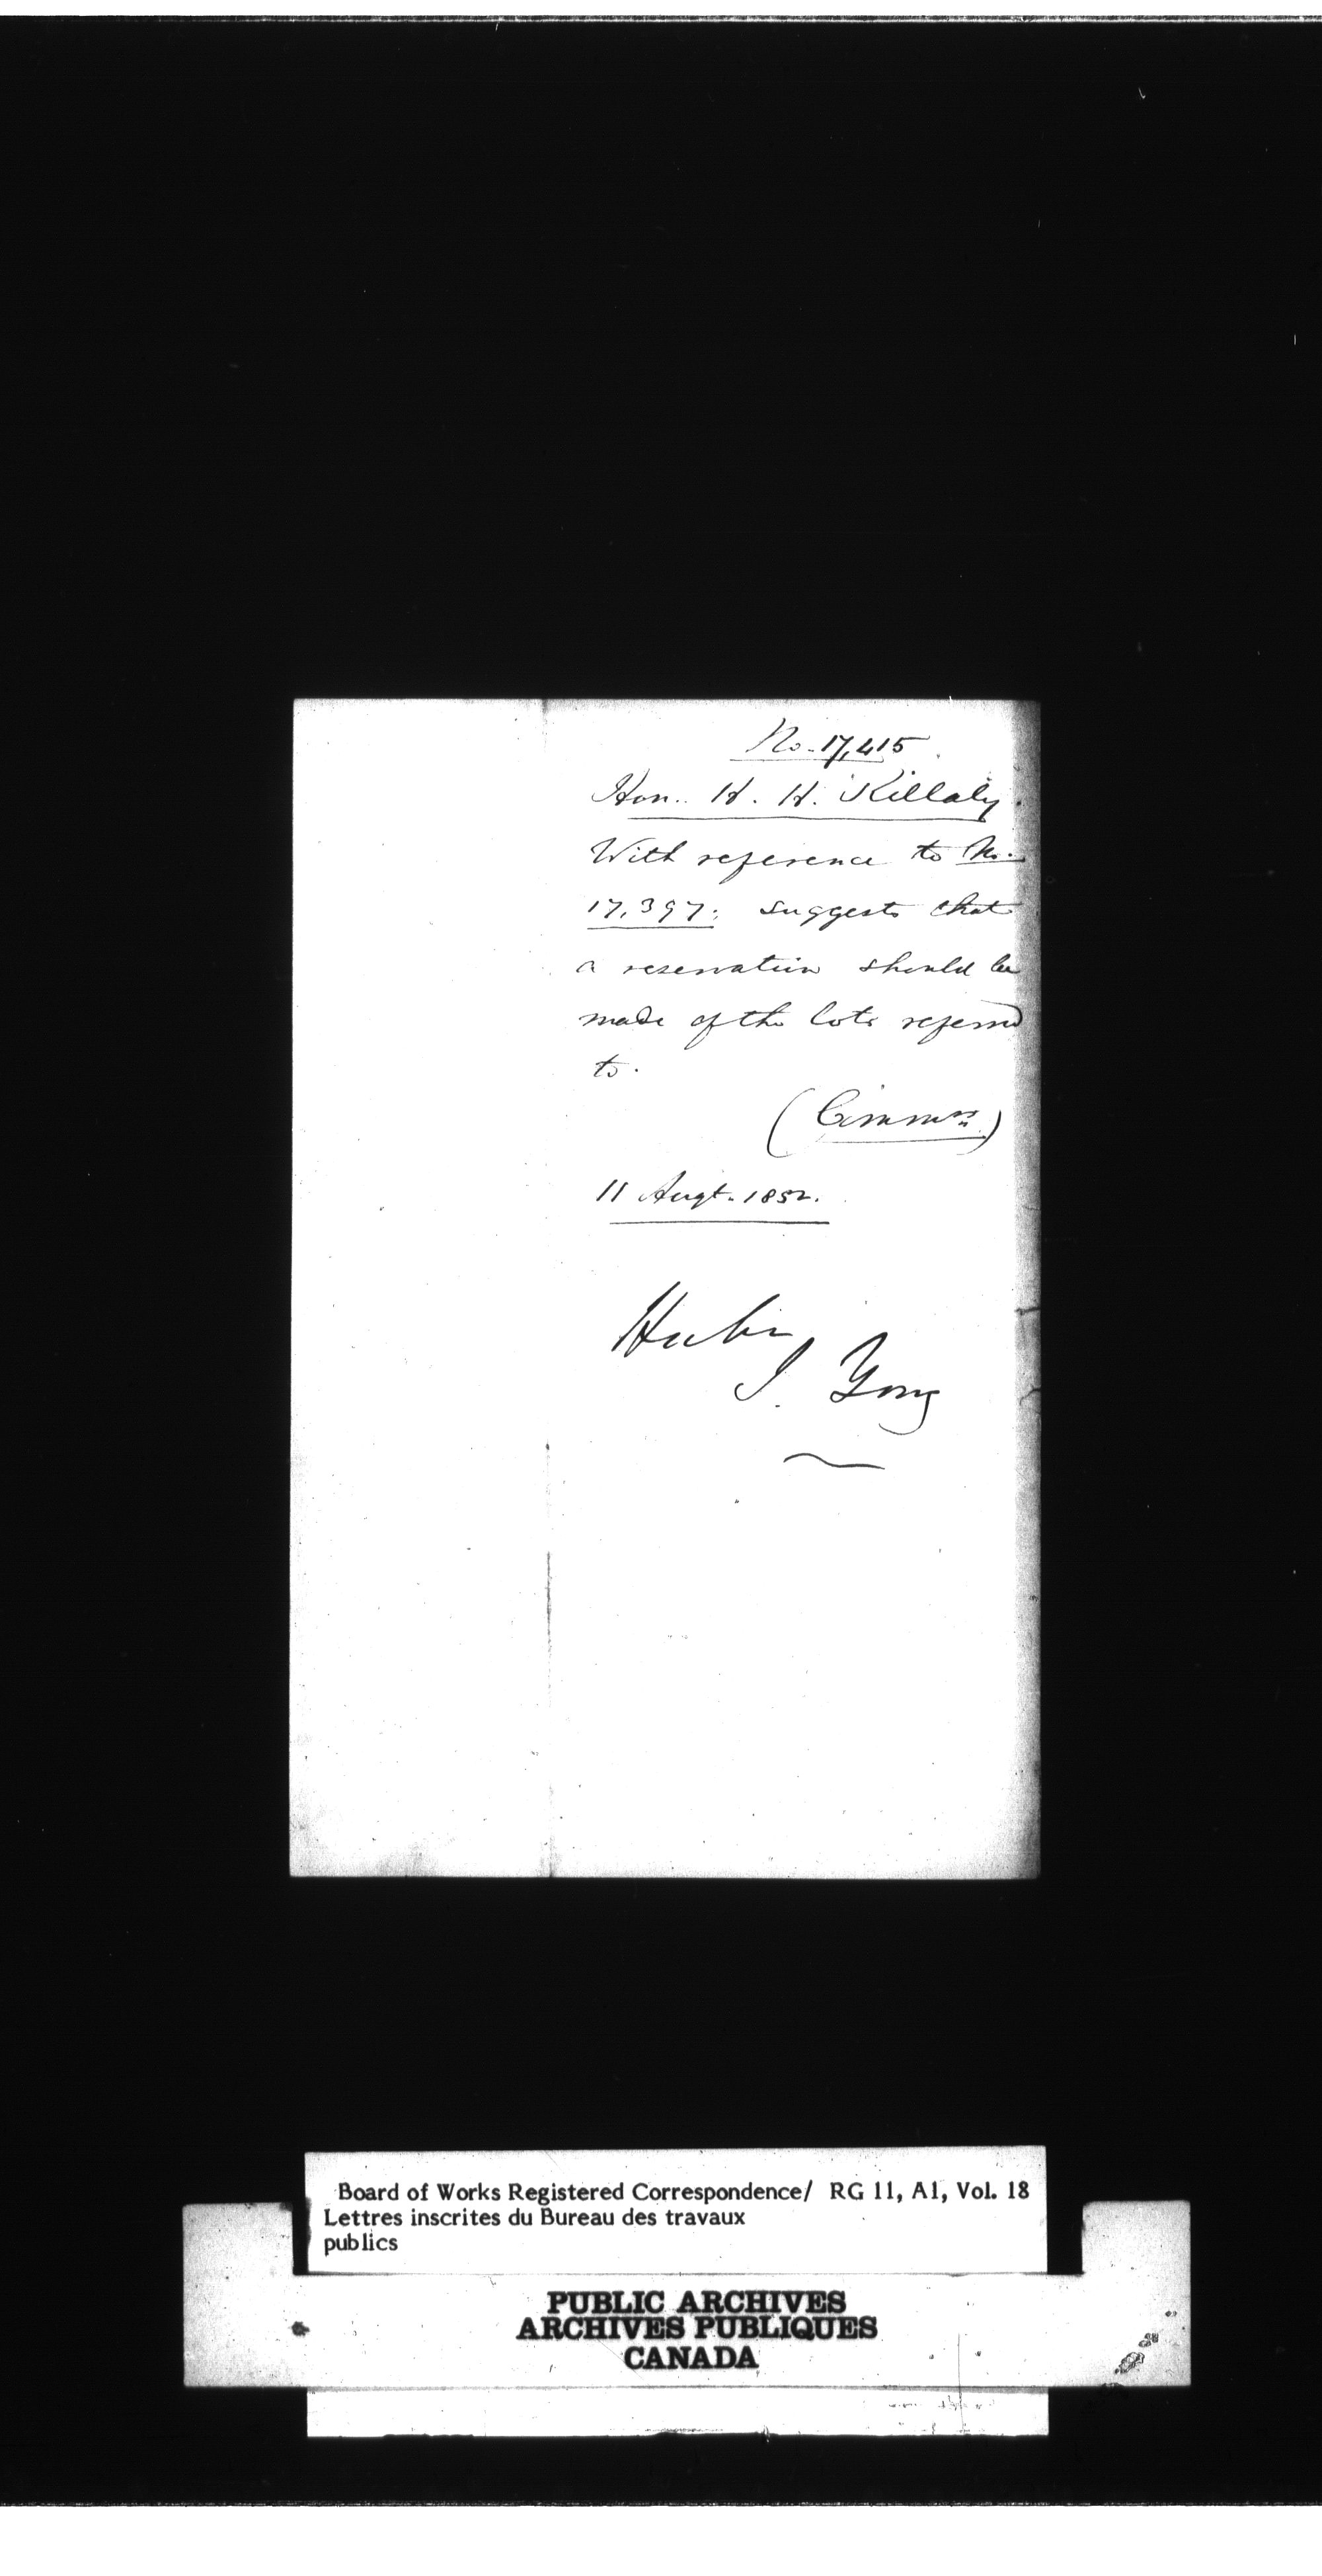 No. 17,415
Hon. H. H. Killaly.
With reference to No.
17,397; suggests that
a reservation should be
made of the lots referred
to.
(Commrs.)
11 Augt. 1852.
J. Young
Board of Works Registered Correspondence/ RG 11, A1, Vol. 18
Lettres inscrites du Bureau des travaux
publics
PUBLIC ARCHIVES
ARCHIVES PUBLIQUES
CANADA